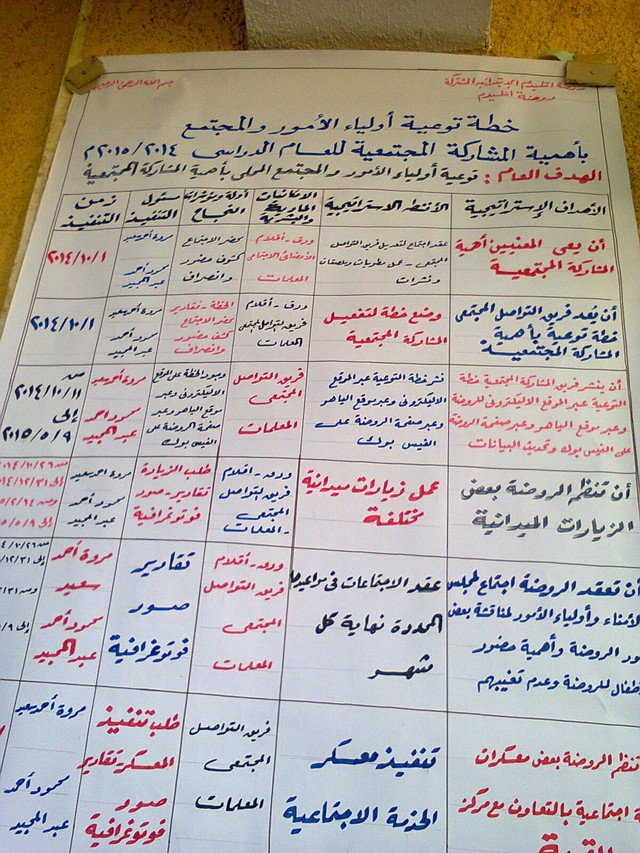 بسم الله الرحمن الرحيم
روضة اطميدم
خطة توعية أولياء الأمور والمجتمع
بأهمية المشاركة المجتمعية للعام الدراسى ٢٠١٤/٢٠١٥م
الهدف العام : توعية أولياء الأمور والمجتمع المحلى بأهمية المشاركة المجتمعية
الأهداف الإستراتيجية
الأنشطة الاستراتيجية
الإمكانيات
المادية
والبشرية
أدلة ومؤشرات
النجاح
مسئول
التنفيذ
زمن
التنفيذ
أن يعى المعنيين أهمية
المشاركة المجتمعية
عقد اجتماع لتعديل فريق التواصل
المجتمعى - عمل مطويات وملصقات
ونشرات
ورق - أقلام
الأخصائى الاجتماعى
المعلمات
محضر الاجتماع
كشوف حضور
وانصراف
مروة أحمد سعيد
محمود أحمد
عبد المجيد
٢٠١٤/١٠/١
أن يُعد فريق التواصل المجتمعى
خطة توعية بأهمية
المشاركة المجتمعية
وضع خطة لتفعيل
المشاركة المجتمعية
ورق - أقلام
فريق التواصل المجتمعى
المعلمات
الخطة - تقارير
محضر الاجتماع
كشف حضور
وانصراف
مروة أحمد سعيد
محمود أحمد
عبد المجيد
٢٠١٤/١٠/١
أن ينشر فريق المشاركة المجتمعية خطة
التوعية عبر الموقع الاليكترونى للروضة
وعبر موقع الياهو وعبر صفحة الروضة
على الفيس بوك وتحديث البيانات
نشر خطة التوعية عبر الموقع
الاليكترونى وعبر موقع الياهو
وعبر صفحة الروضة على
الفيس بوك
فريق التواصل
المجتمعى
المعلمات
وجود الخطة على الموقع
الاليكترونى وعبر
موقع الياهو وعبر
صفحة الروضة على
الفيس بوك
مروة أحمد سعيد
محمود أحمد
عبد المجيد
من
٢٠١٤/١٠/١١
إلى
٢٠١٥/٥/٩
أن تنظم الروضة بعض
الزيارات الميدانية
عمل زيارات ميدانية
مختلفة
ورق - أقلام
فريق التواصل
المجتمعى
- المعلمات
طلب الزيارة
تقارير - صور
فوتوغرافية
مروة أحمد سعيد
محمود أحمد
عبد المجيد
أن تعقد الروضة اجتماع لمجلس
الأمناء وأولياء الأمور لمناقشة بعض
الروضة وأهمية حضور
للروضة وعدم تغيبهم
عقد الاجتماعات فى مواعيدها
المحددة نهاية كل
شهر
ورق - أقلام
فريق التواصل
المجتمعى
المعلمات
تقارير
صور
فوتوغرافية
مروة أحمد
سعيد
محمود أحمد
عبد المجيد
تنظم الروضة بعض معسكرات
اجتماعية بالتعاون مع مركز
تنفيذ معسكر
الخدمة الاجتماعية
فريق التواصل
المجتمعى
المعلمات
طلب تنفيذ
المعسكر - تقارير
صور
فوتوغرافية
مروة أحمد سعيد
محمود أحمد
عبد المجيد